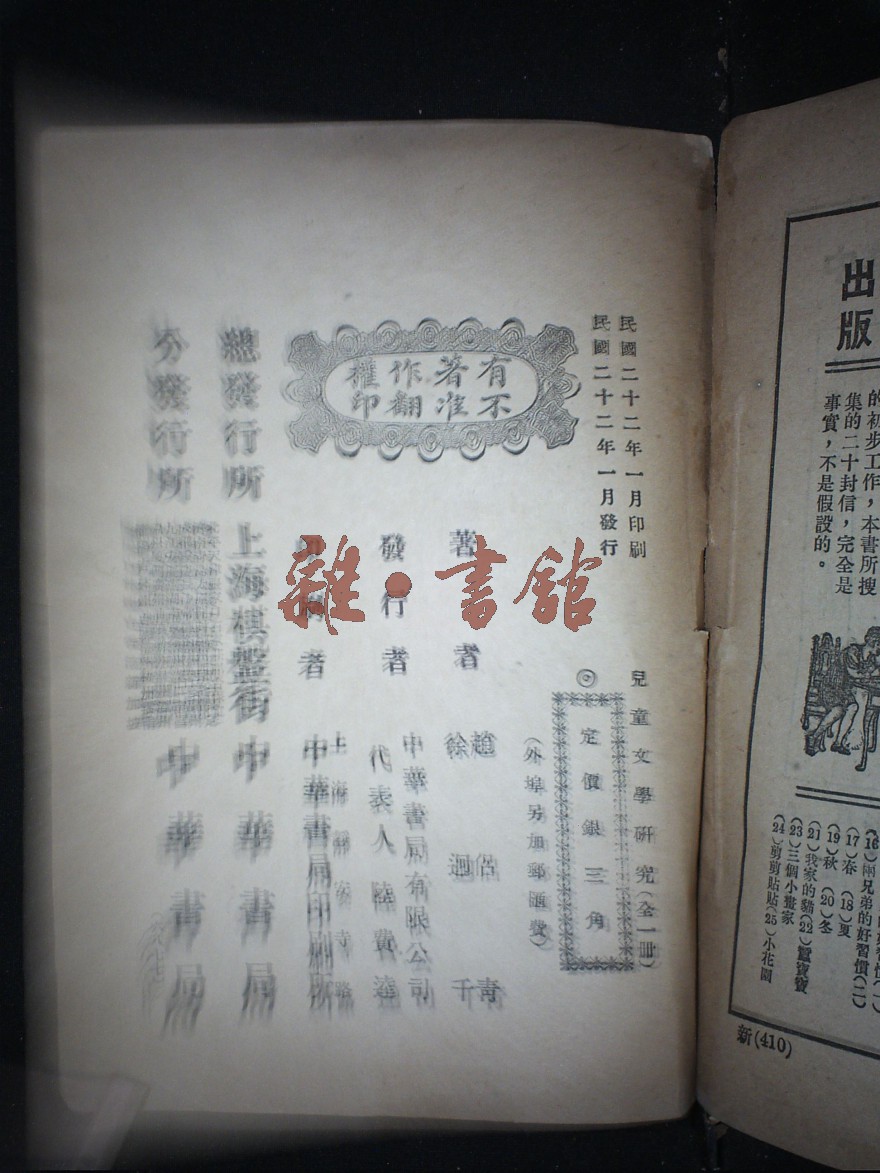 出版
的初步工作，本書所搜
集的二十封信，完全是
事實，不是假設的。
(16)兩兄弟的好習慣(二)
(17)春 (18)夏
(19)秋 (20)冬
(21)我家的貓(22)蠶寶寶
(23)三個小畫家
(24)剪剪貼貼(25)小花園
新(410)
民國二十二年一月印刷
民國二十二年一月發行
兒童文學研究(全一冊)
◎定價銀三角
(外埠另加郵匯費)
有著作權
不准翻印
著者
趙侶青
徐迥千
發行者
中華書局有限公司
代表人陸費逵
印刷者
上海靜安寺路
中華書局印刷所
總發行所 上海棋盤街 中華書局
分發行所 中華書局
雜·書館